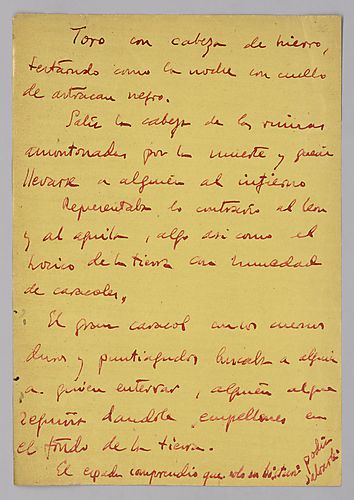 Toro con cabeza de hierro,
testarudo como la noche con cuello
de astracan negro.
Salia la cabeza de las ruinas
amontonadas por la muerte y queria
llevarse a alguien al infierno
Representaba lo contrario al leon
y al aguila, algo asi como el
hocico de la tierra con humedad
de caracoles,
El gran caracol con los cuernos
duros y puntiagudos buscaba a alguien
a quien enterrar, alguien a quien
seguir dandole empellones en
el fondo de la tierra.
El espada comprendio que solo en
podia
salvarle